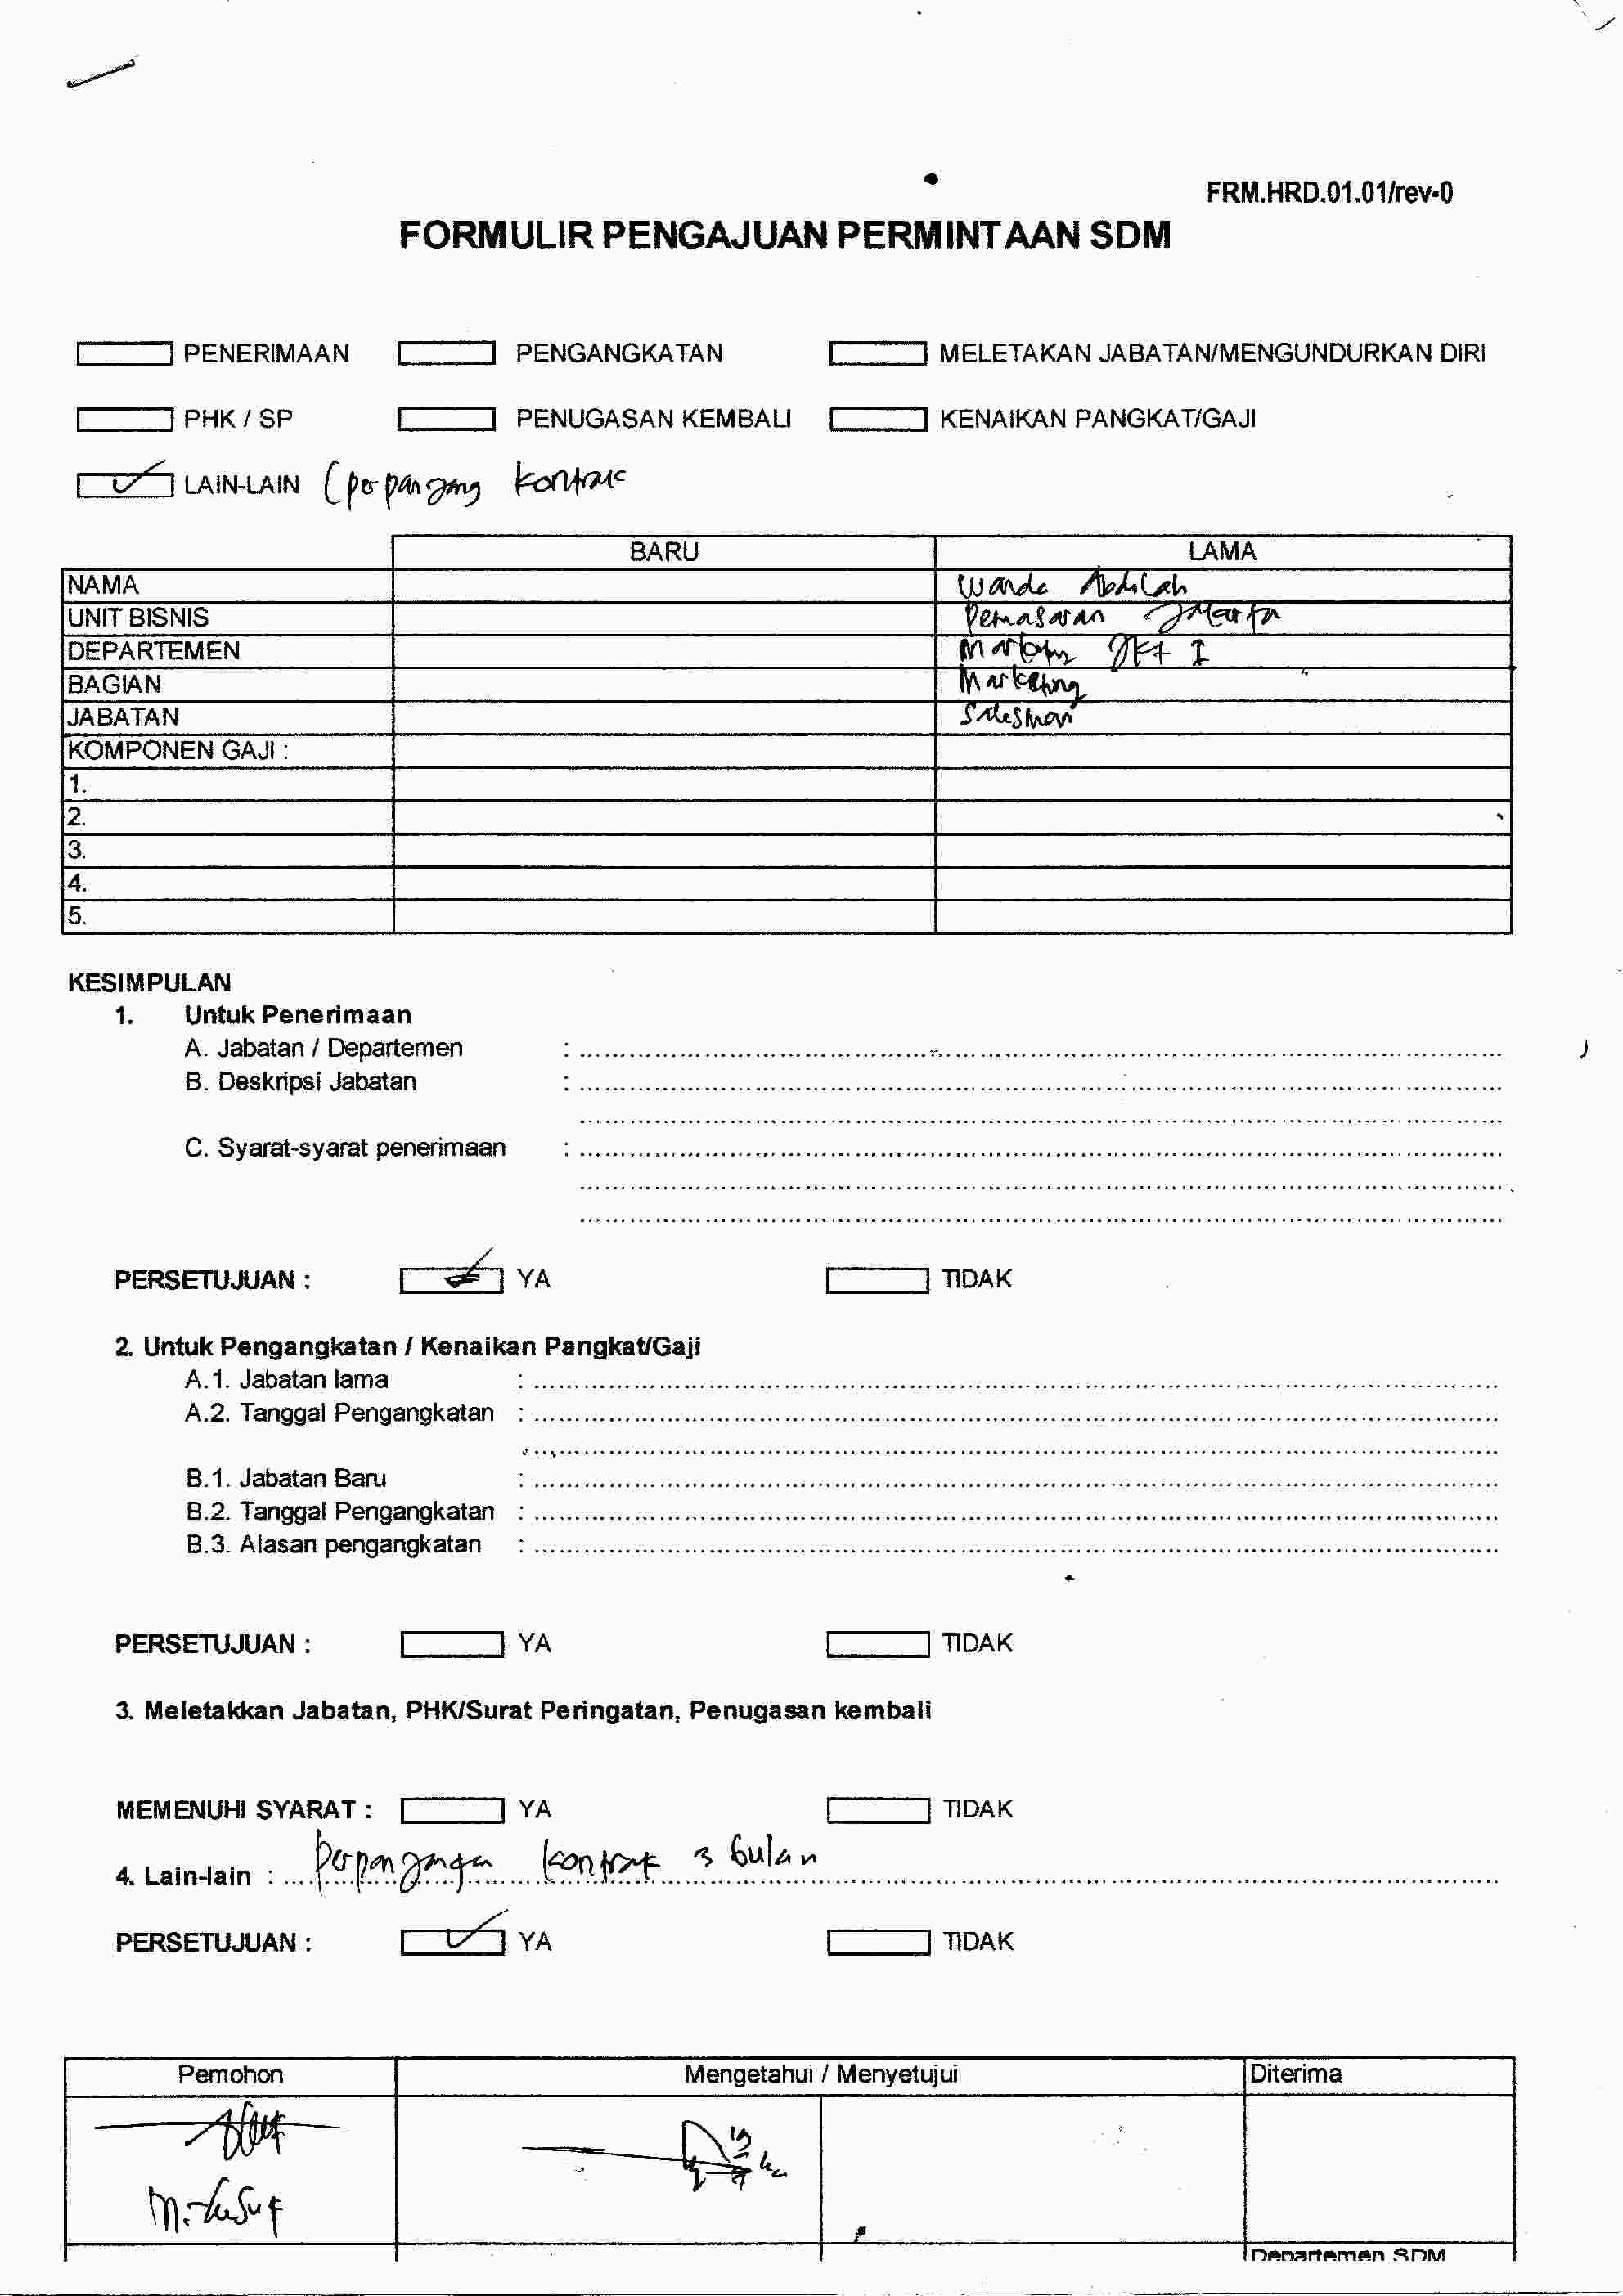 FRM.HRD.01.01/rev-0
FORMULIR PENGAJUAN PERMINTAAN SDM
PENERIMAAN PENGANGKATAN MELETAKAN JABATAN/MENGUNDURKAN DIRI
PHK / SP PENUGASAN KEMBALI KENAIKAN PANGKAT/GAJI
LAIN-LAIN (perpanjang kontrak
BARU LAMA
NAMA Wanda Abdilah
UNIT BISNIS Pemasaran Jakarta
DEPARTEMEN JKT I
BAGIAN Marketing
JABATAN Salesman
KOMPONEN GAJI :
1.
2.
3.
4.
5.
KESIMPULAN
1. Untuk Penerimaan
A. Jabatan / Departemen :
B. Deskripsi Jabatan :
C. Syarat-syarat penerimaan :
PERSETUJUAN : YA TIDAK
2. Untuk Pengangkatan / Kenaikan Pangkat/Gaji
A.1. Jabatan lama :
A.2. Tanggal Pengangkatan :
B.1. Jabatan Baru :
B.2. Tanggal Pengangkatan :
B.3. Alasan pengangkatan :
PERSETUJUAN : YA TIDAK
3. Meletakkan Jabatan, PHK/Surat Peringatan, Penugasan kembali
MEMENUHI SYARAT : YA TIDAK
4. Lain-lain : perpanjangan kontrak 3 bulan
PERSETUJUAN : YA TIDAK
Pemohon Mengetahui / Menyetujui Diterima
M. Yusuf
Departemen SDM